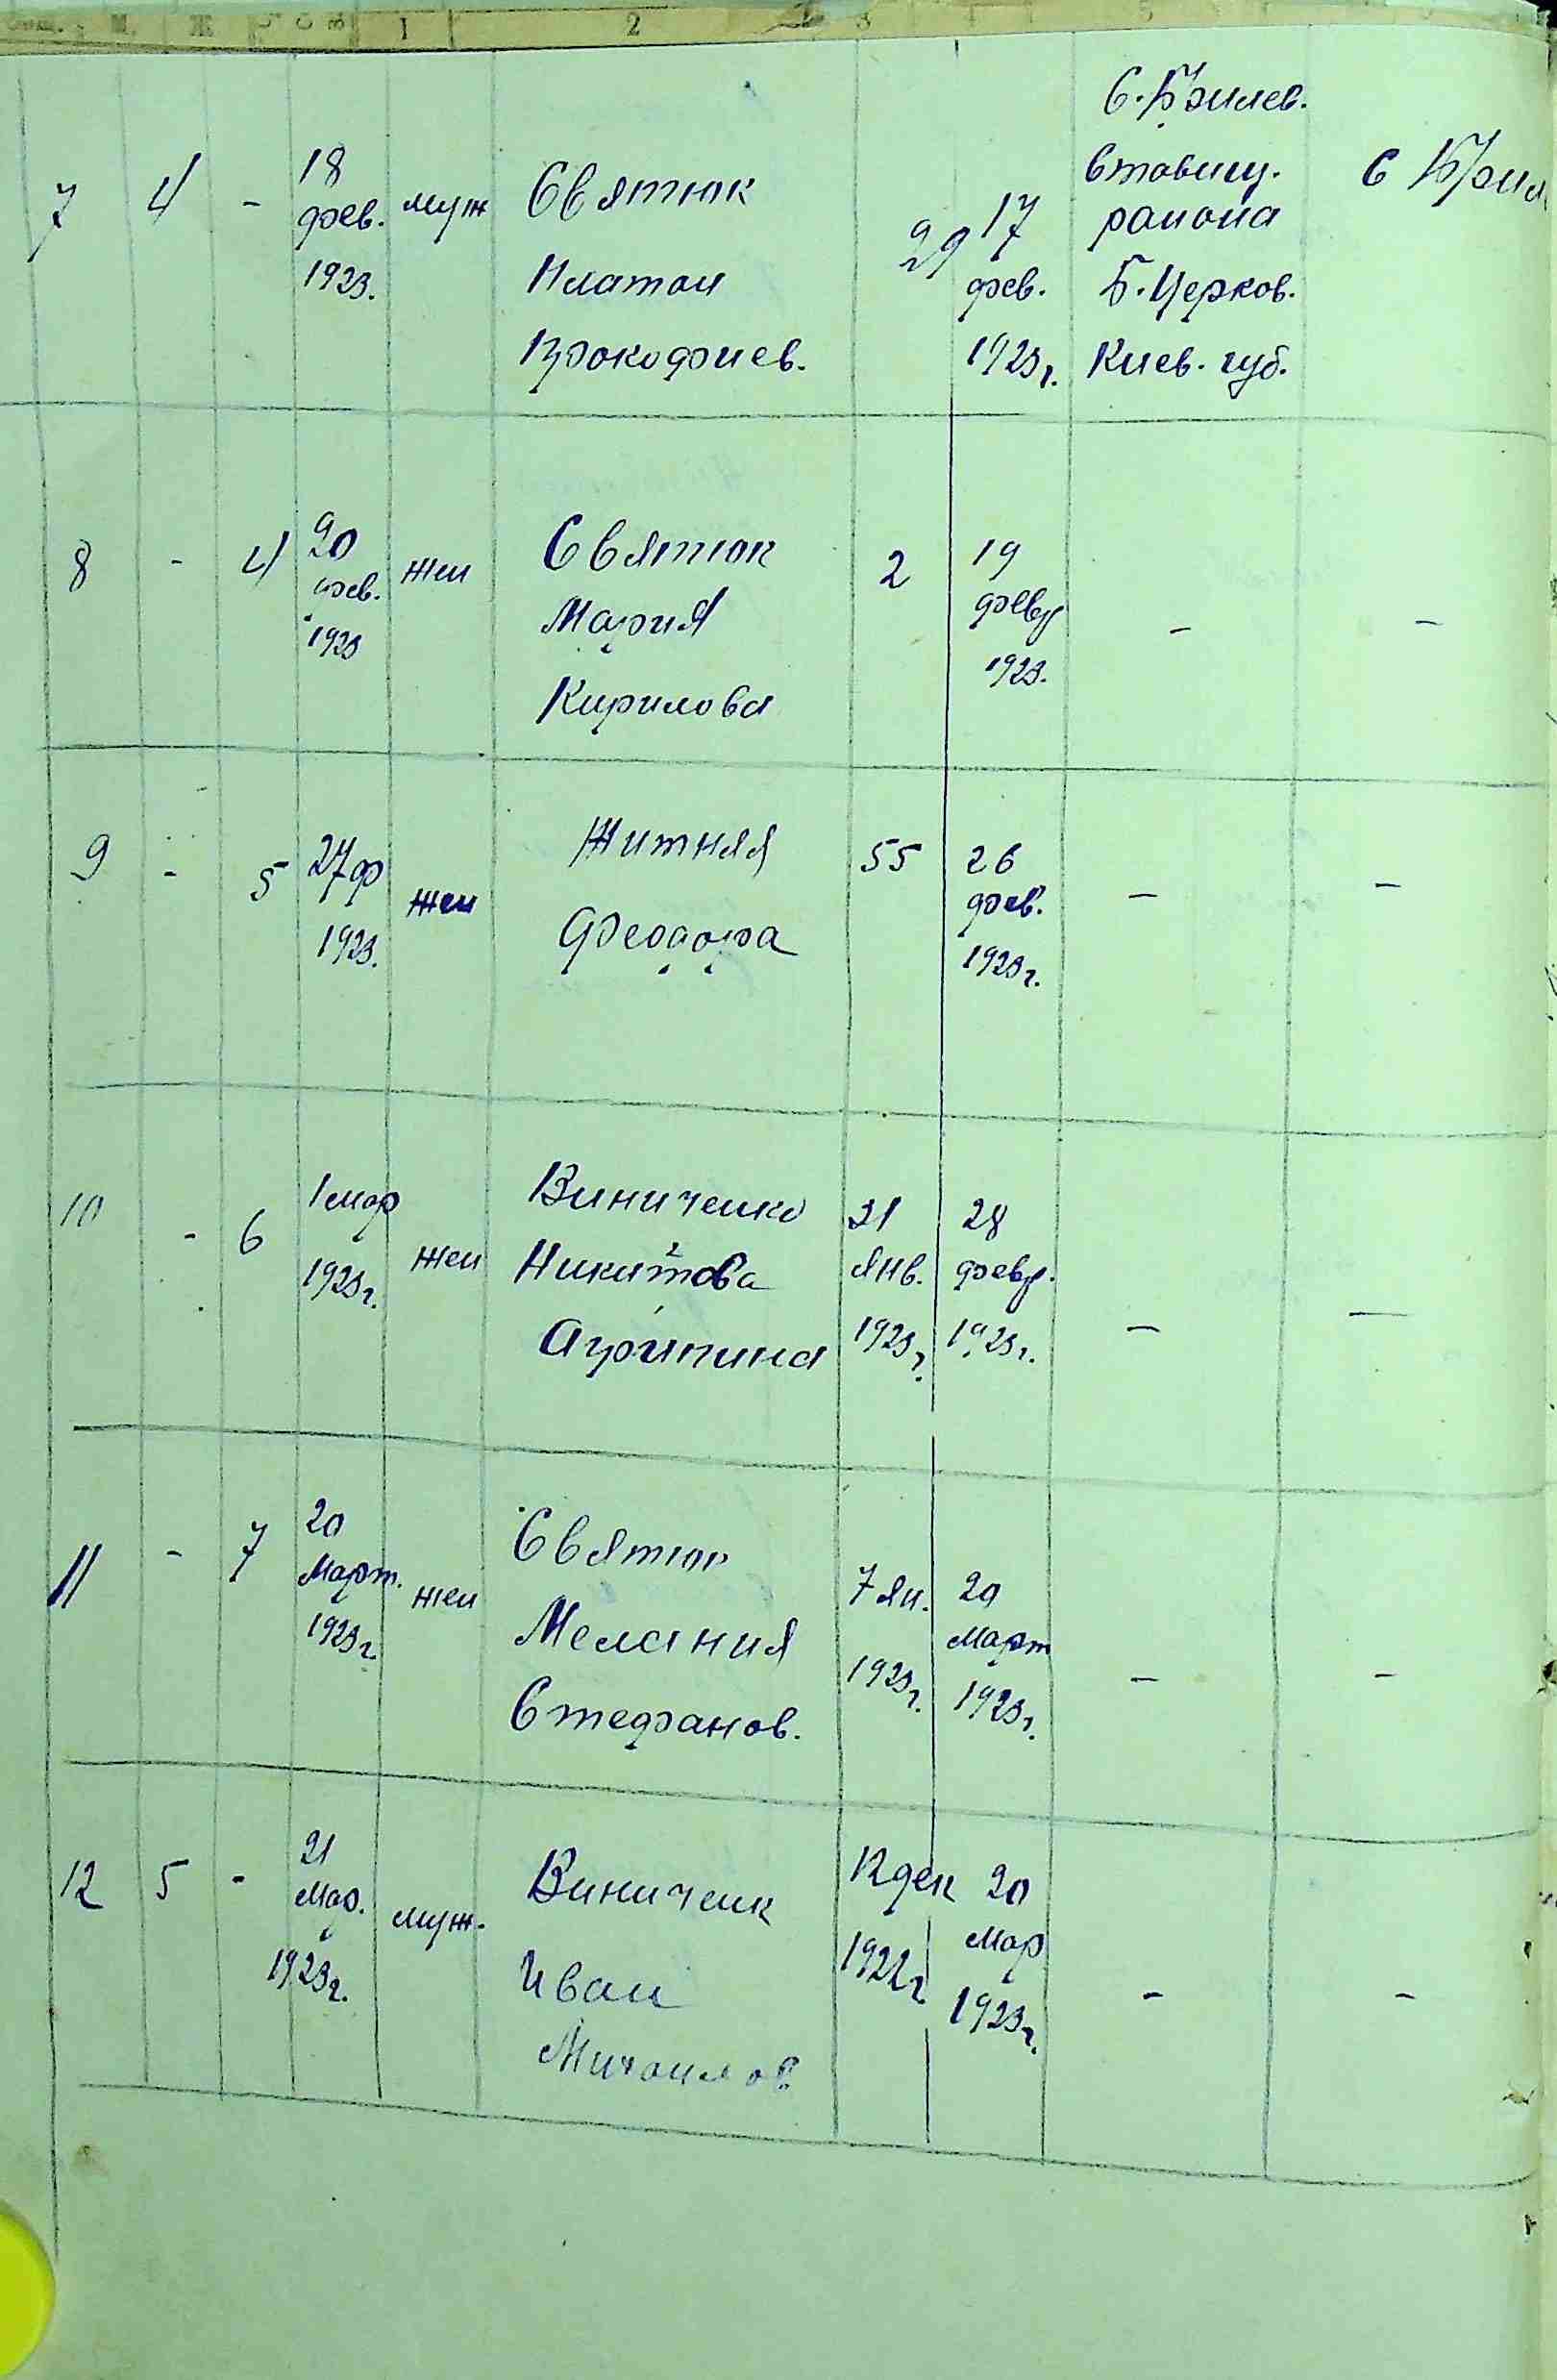 М. Ж 1 2 3 4 5
7 4 - 18 фев. 1923. муж Святюк Платон Прокофиев. 29 17 фев. 1923г.
Ставищ. района Б. Церков. Киев. губ.
8 - 4 20 фев. 1923 жен Святюк Мария Кирилова 2 19 февр 1923. - -
9 - 5 27ф 1923. жен Житняя Феодора 55 26 фев. 1923г. - -
10 - 6 1 мар 1923г. жен Виниченко Никитова Агрипина 31 янв. 1923г. 28 февр. 1923г. - -
11 - 7 20 Март. 1923г. жен Святюк Мелания Стефанов. 7 ян. 1923г. Март 1923г. - -
12 5 - 21 Мар. 1923г. муж. Виниченк Иван Михаилов 12 дек 1922г. 20 мар 1923г. - -